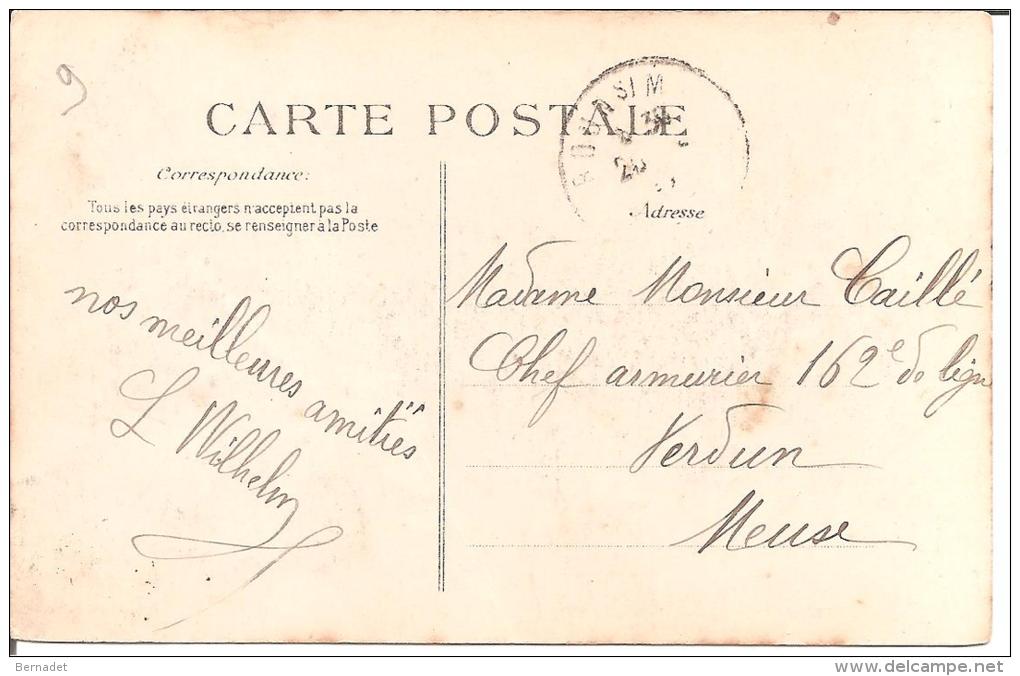 9
CARTE POSTALE
Correspondance:
Tous les pays étrangers n'acceptent pas la
correspondance au recto, se renseigner à la Poste
nos meilleures amitiés
L Wilhelm
Adresse
Madame Monsieur Caillé
Chef armurier 162e de lign
Verdun
Meuse
Bernadet
www.delcampe.net